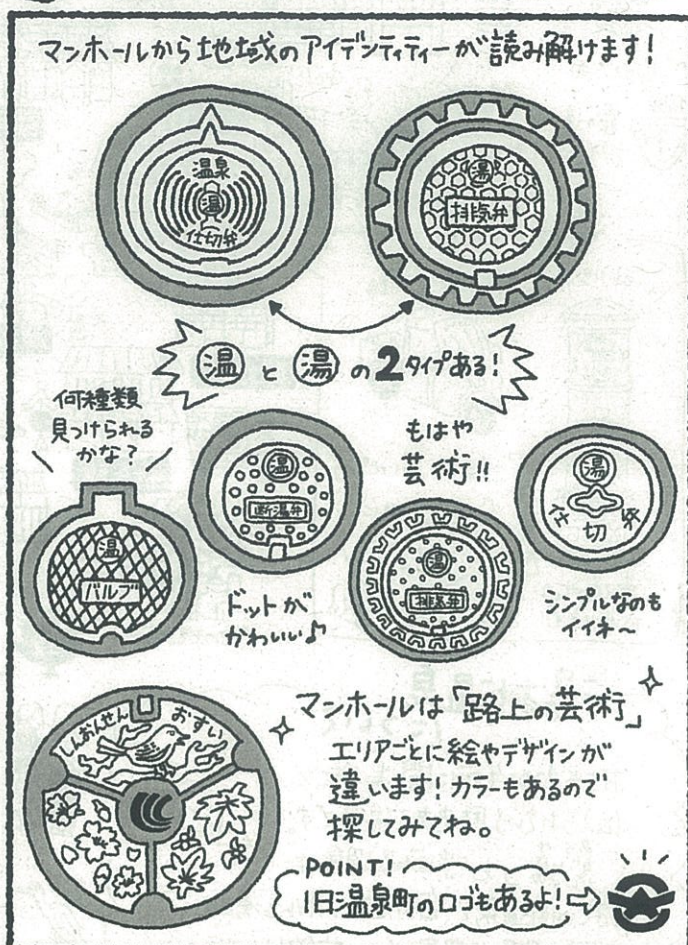 マンホールから地域のアイデンティティーが読み解けます!
温泉
温
仕切弁
湯
排気弁
温と湯の2タイプある!
何種類
見つけられる
かな?
温
バルブ
温
断温弁
ドットが
かわいい♪
もはや
芸術!!
温
排気弁
湯
仕切弁
シンプルなのも
イイネ〜
しんおんせん
おすい
マンホールは「路上の芸術」
エリアごとに絵やデザインが
違います!カラーもあるので
探してみてね。
POINT!
旧温泉町のロゴもあるよ!⇨